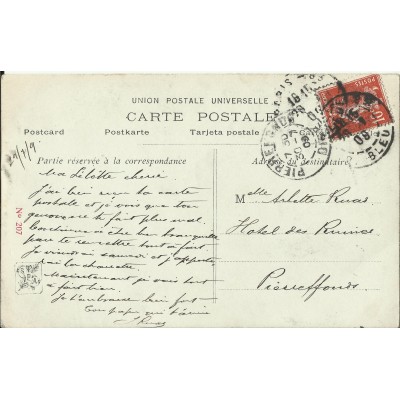 UNION POSTALE UNIVERSELLE
CARTE POSTALE
Postcard Postkarte Tarjeta postale
Partie réservée à la correspondance
Adresse du destinataire
Ma Lilette cherie
J'ai bien reçu ta carte
postale et je vois que ton
genou te fait plus mal.
Continue à être bien tranquille
pour te remettre tout à fait.
Je viendrai samedi et j'apporterai
Maintenant je vais tout
à fait bien.
Je t'embrasse bien fort
Ton papa qui t'aime
Ruas
No 207
Melle Arlette Ruas
Hotel des Ruines
Pierrefonds